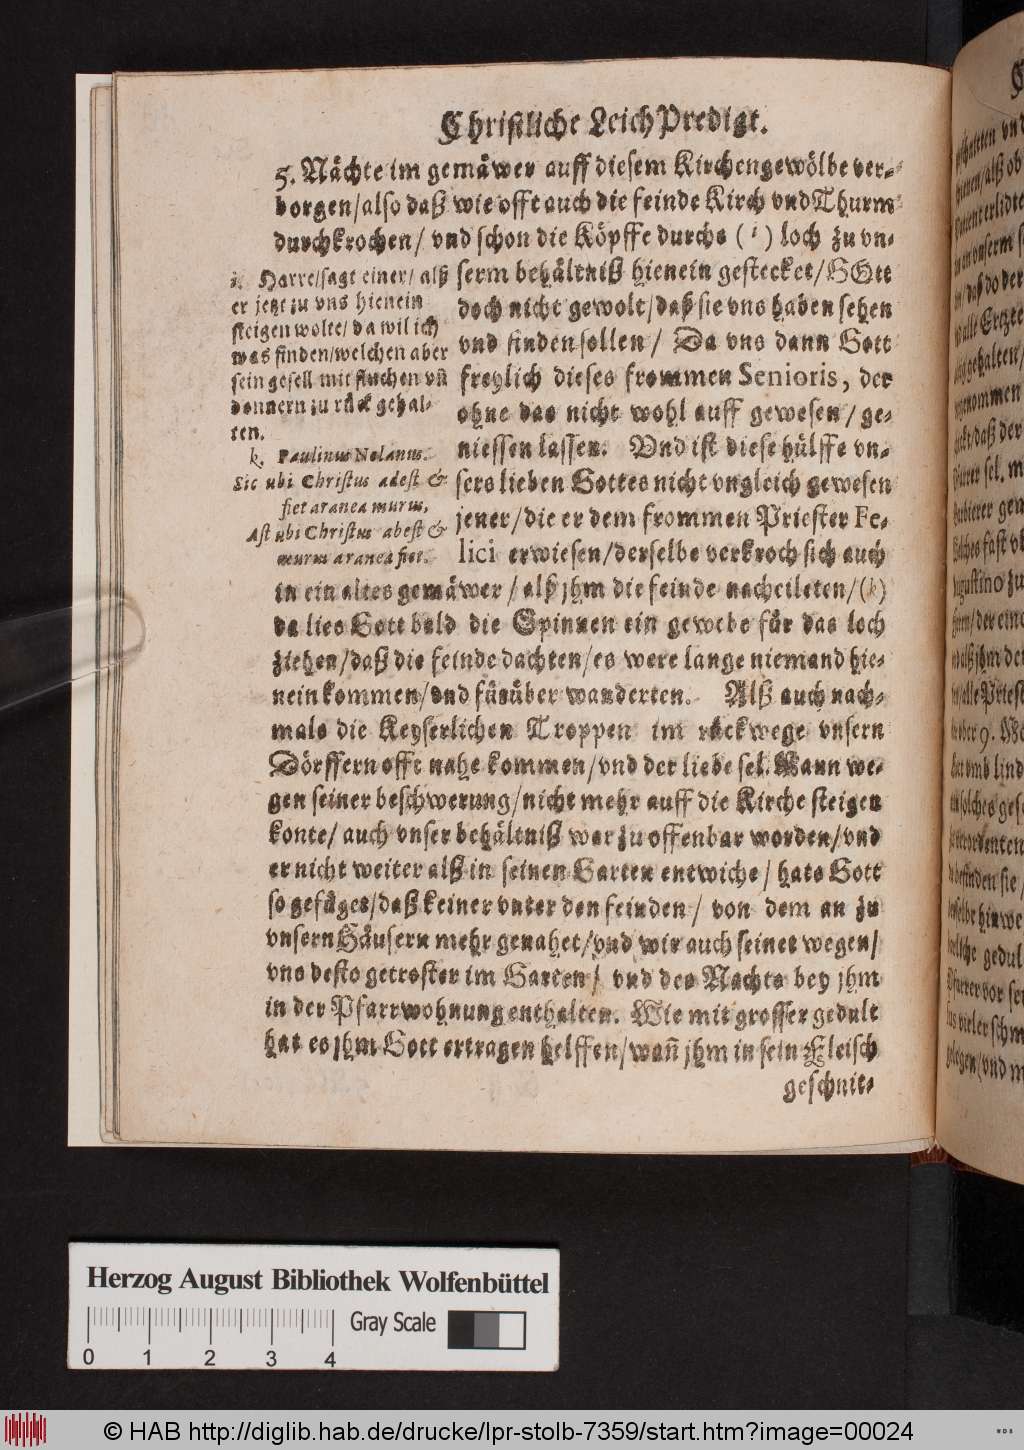 Christliche LeichPredigt.
5. Nächte im gemäwer auff diesem Kirchengewölbe ver-
borgen/also daß wie offt auch die feinde Kirch vnd Thurm
durchkrochen/ vnd schon die Köpffe durchs (i) loch zu vn-
serm behältniß hienein gestecket/GOtt
doch nicht gewolt/daß sie vns haben sehen
vnd finden sollen/ Da vns dann Gott
freylich dieses frommen Senioris, der
ohne das nicht wohl auff gewesen/ge-
niessen lassen. Vnd ist diese hülffe vn-
sers lieben Gottes nicht vngleich gewesen
jener/die er dem frommen Priester Fe-
lici erwiesen/derselbe verkroch sich auch
i. Harre/sagt einer/ alß
er jetzt zu vns hienein
steigen wolte/ da wil ich
was finden/welchen aber
sein gesell mit fluchen vñ
donnern zu rück gehal-
ten.
k. Paulinus Nolanus.
Sic ubi Christus adest &
fiet aranea murus,
Ast ubi Christus abest &
murus aranea fiet.
in ein altes gemäwer/alß jhm die feinde nacheileten/(k)
da lies Gott bald die Spinnen ein gewebe für das loch
ziehen/daß die feinde dachten/es were lange niemand hie-
nein kommen/vnd fürüber wanderten. Alß auch nach-
mals die Keyserlichen Troppen im rückwege vnsern
Dörffern offt nahe kommen/vnd der liebe sel. Mann we-
gen seiner beschwerung/nicht mehr auff die Kirche steigen
konte/ auch vnser behältniß war zu offenbar worden/vnd
er nicht weiter alß in seinen Garten entwiche/ hats Gott
so gefüget/daß keiner vnter den feinden/ von dem an zu
vnsern Häusern mehr genahet/vnd wir auch seinet wegen/
vns desto getroster im Garten/ vnd des Nachts bey jhm
in der Pfarrwohnung enthalten. Wie mit grosser gedult
hat es jhm Gott ertragen helffen/wañ jhm in sein Fleisch
geschnit-
Herzog August Bibliothek Wolfenbüttel
Gray Scale
0 1 2 3 4
© HAB http://diglib.hab.de/drucke/lpr-stolb-7359/start.htm?image=00024